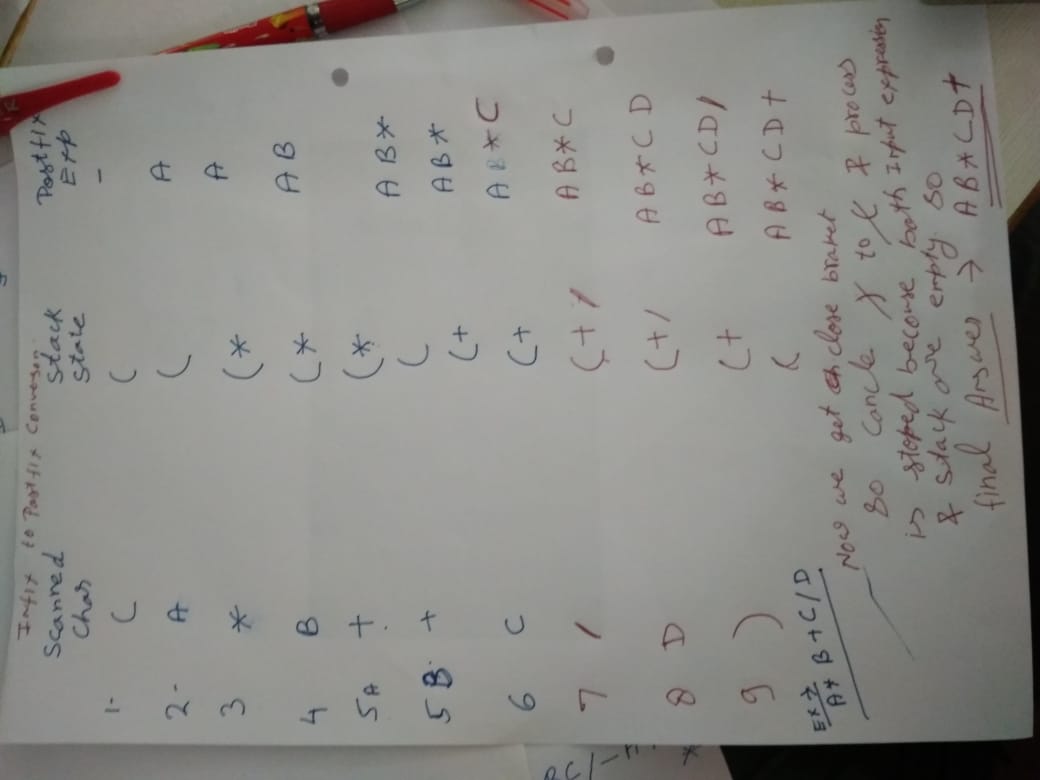 Infix to Postfix Conversion.
Scanned Char Stack State Postfix Exp
1- ( ( -
2- A ( A
3 * (* A
4 B (* AB
5A +. (* AB*
(
5B. + (+ AB*
6 C (+ AB*C
7 / (+/ AB*C
8 D (+/ ABXCD
9 ) (+ AB*CD/
( AB*CD+
Ex 2
A* B + C/D
Now we get close braket
so cancle ) to ( & process
is stoped becouse both Input expression
& stack are empty. so
final Answer → AB*CD+